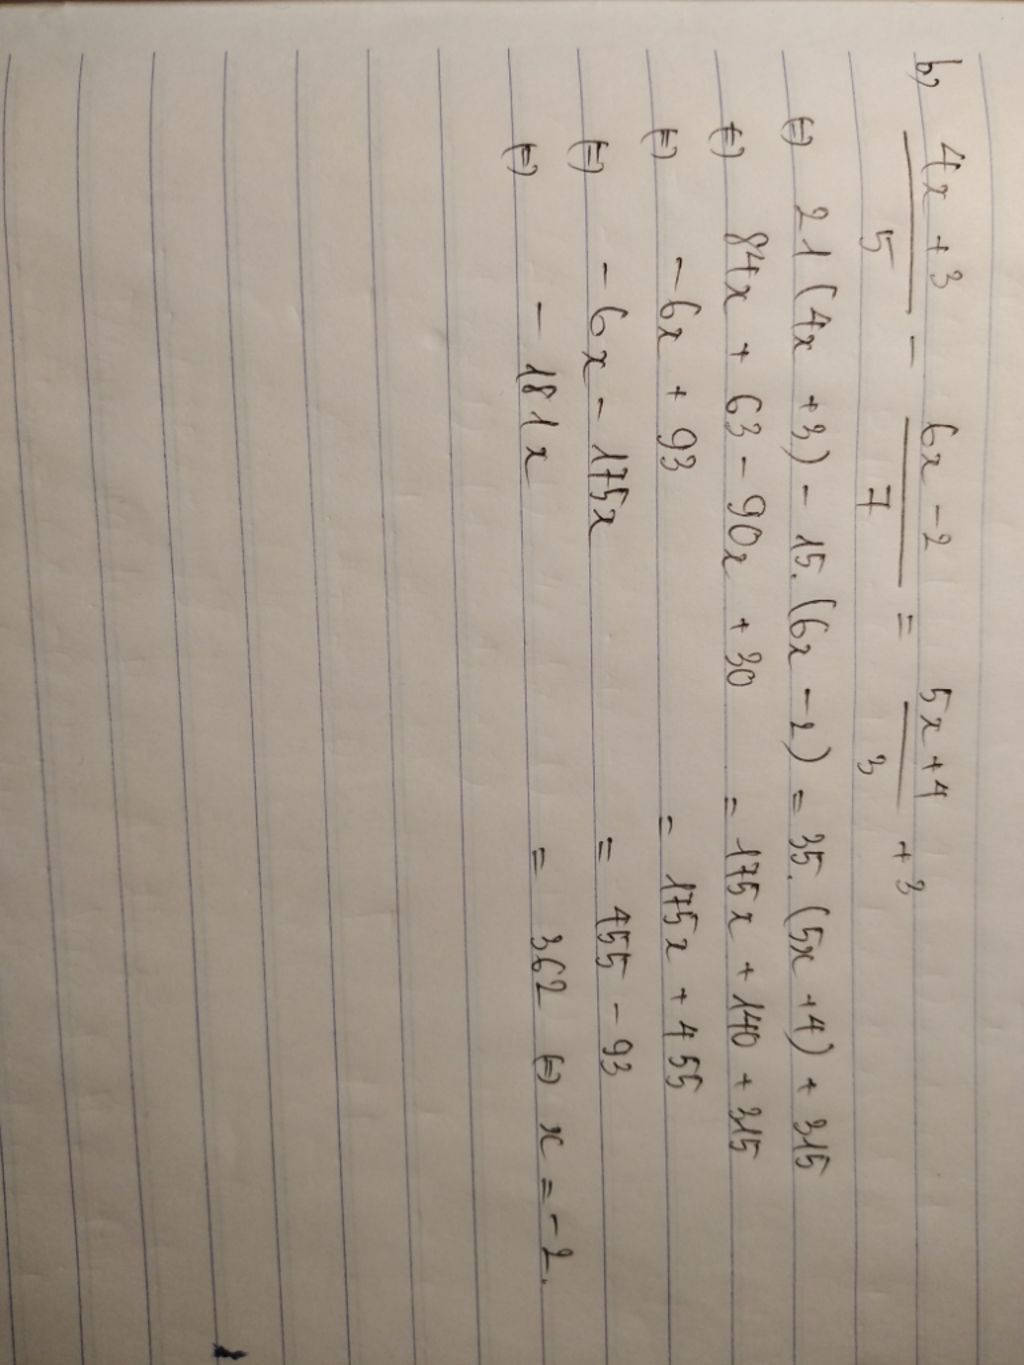 b) \frac{4x + 3}{5} - \frac{6x - 2}{7} = \frac{5x + 4}{3} + 3
(=) 21 (4x + 3) - 15. (6x - 2) = 35. (5x + 4) + 315
(=) 84x + 63 - 90x + 30 = 175x + 140 + 315
(=) - 6x + 93 = 175x + 455
(=) - 6x - 175x = 455 - 93
(=) - 181x = 362 (=) x = - 2.